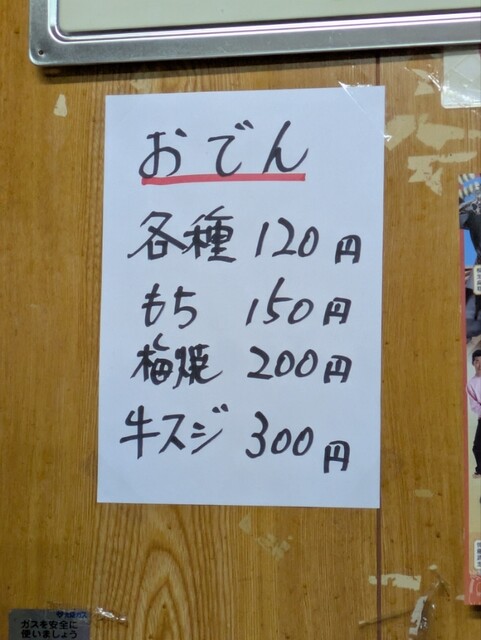 おでん
各種 120円
もち 150円
梅焼 200円
牛スジ 300円
ガスを安全に
使いましょう